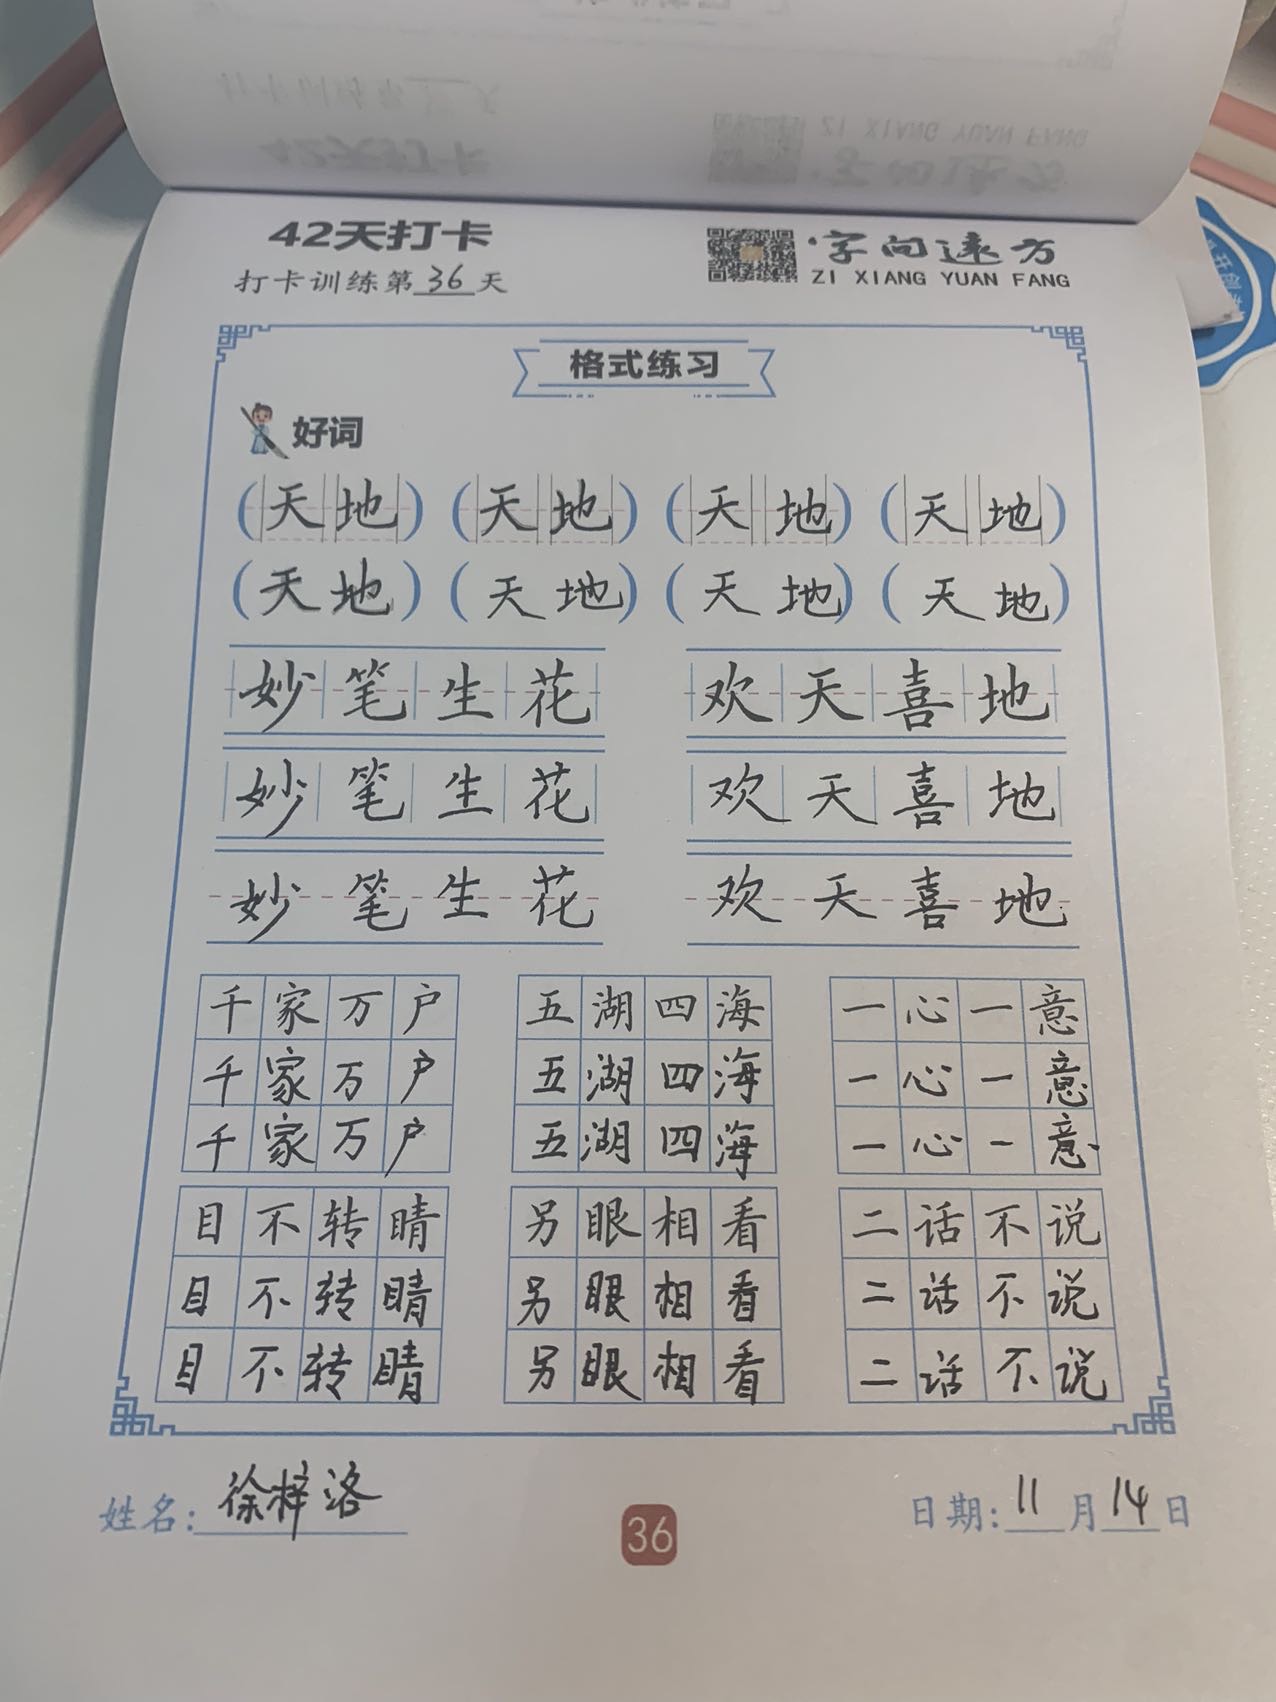 42天打卡
字向远方
打卡训练第36天
ZI XIANG YUAN FANG
格式练习
好词
(天地) (天地) (天地) (天地)
(天地) (天地) (天地) (天地)
妙笔生花 欢天喜地
妙笔生花 欢天喜地
妙笔生花 欢天喜地
千家万户 五湖四海 一心一意
千家万户 五湖四海 一心一意
千家万户 五湖四海 一心一意
目不转睛 另眼相看 二话不说
目不转睛 另眼相看 二话不说
目不转睛 另眼相看 二话不说
姓名:徐梓洛
日期:11月14日
36